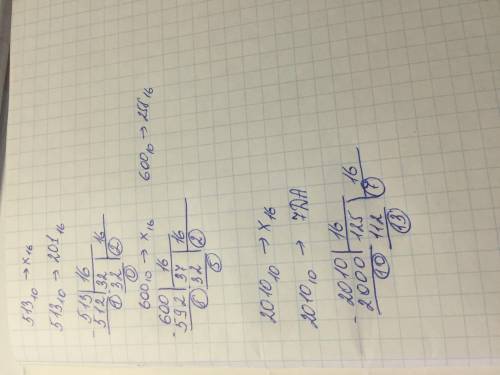 513₁₀ → x₁₆
513₁₀ → 201₁₆
- 513 | 16
512 | 32 | 16
1 32 2
0
600₁₀ → x₁₆ 600₁₀ → 258₁₆
- 600 | 16
592 | 37 | 16
32 2
5
2010₁₀ → x₁₆
2010₁₀ → 7DA
- 2010 | 16
2000 | 125 | 16
10 112 7
13